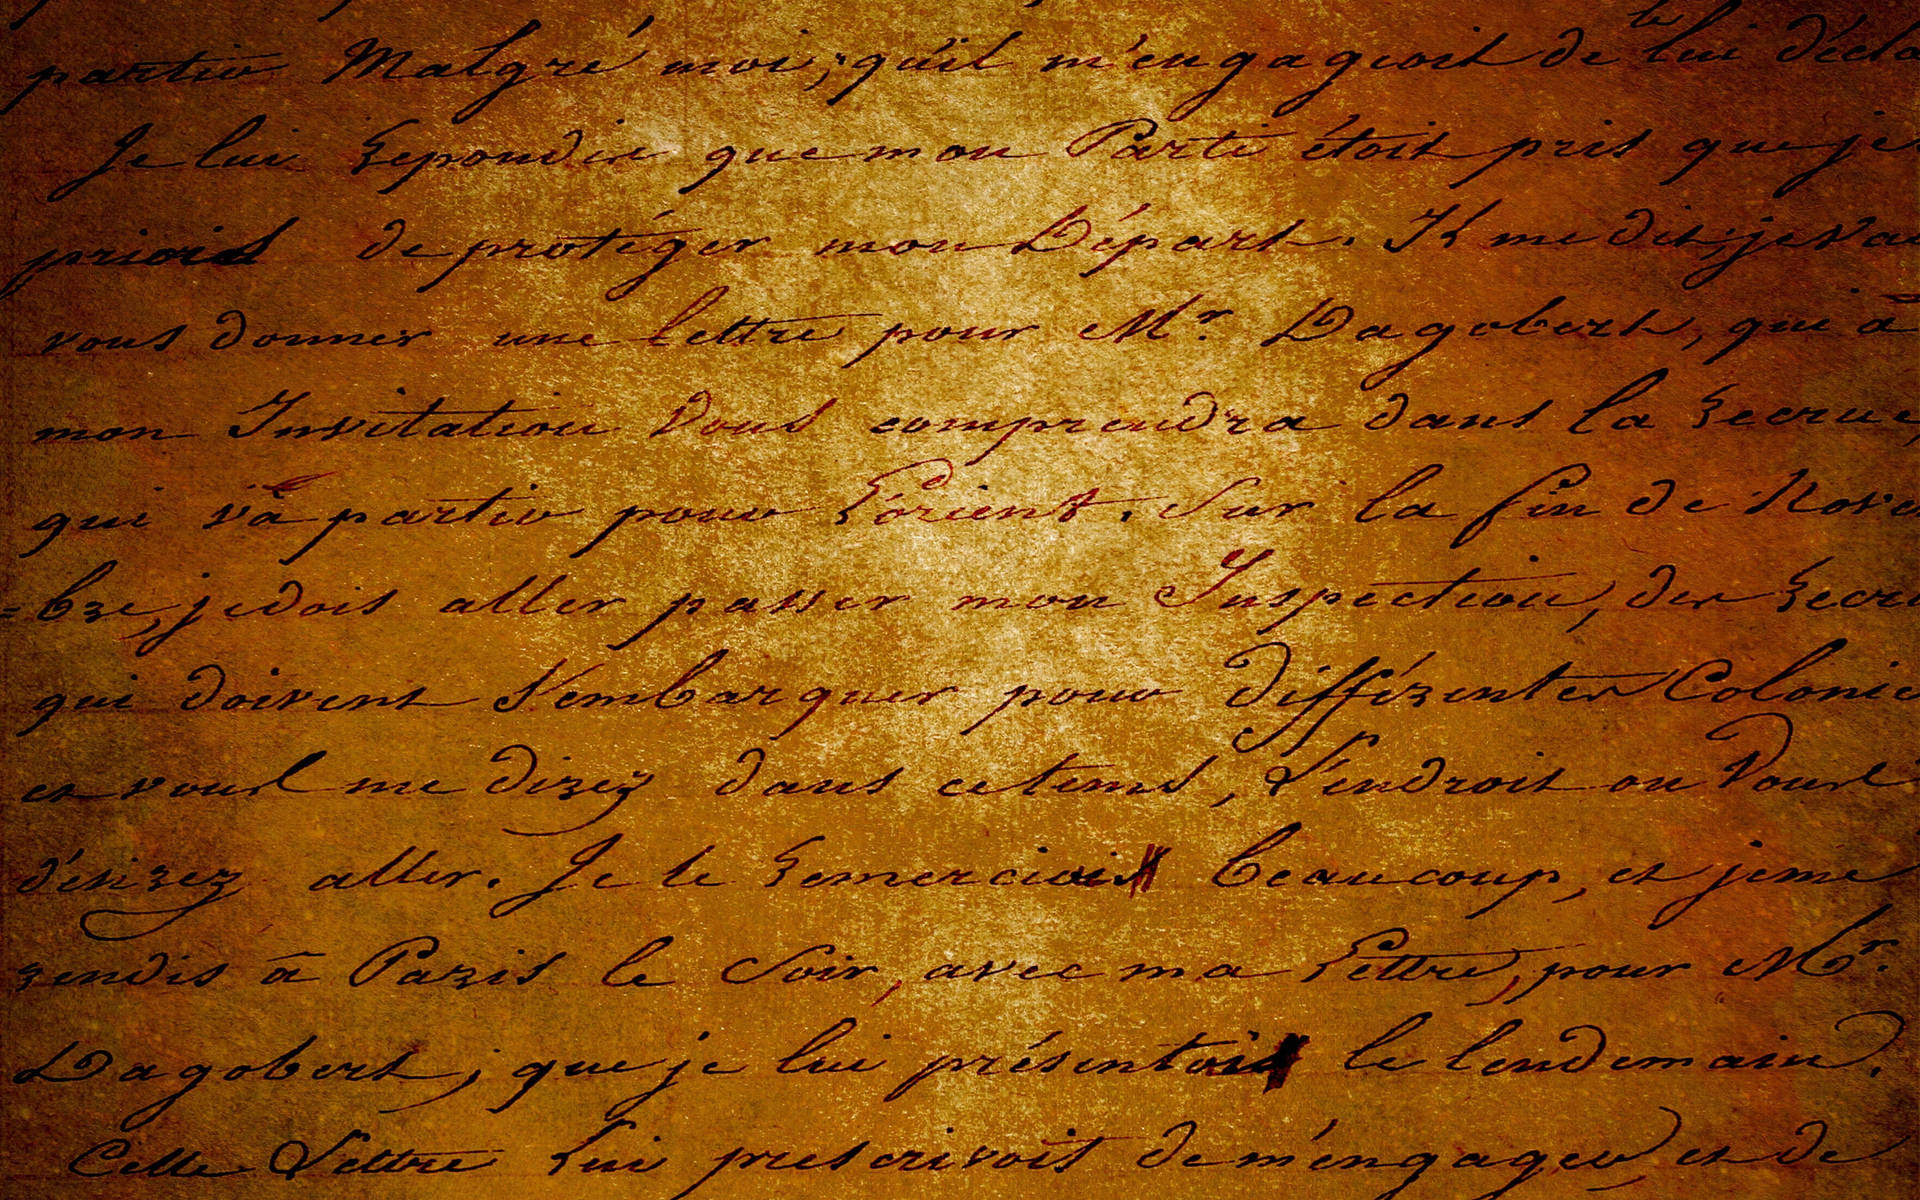 partir Malgré moi; qu'il m'engageoit de le lui décla
Je lui Repondis que mon Parti étoit pris que je
priois de protéger mon Départ. Il me dit: je Vai
vous donner une Lettre pour Mr. Dagobert, qui à
mon Invitation Vous comprendra dans la Recrue,
qui vâ partir pour L'orient. Sur la fin de Nove
=bre, je dois aller passer mon Inspection, des Recru
qui doivent S'embarquer pour différentes Colonie
et vous me direz dans ce tems, L'endroit ou Vous
désirez aller. Je le Remerciois beaucoup, et je me
rendis à Paris le Soir, avec ma Lettre, pour Mr.
Dagobert, que je lui présentois le lendemain.
Cette Lettre Lui prescrivoit de m'engager et de